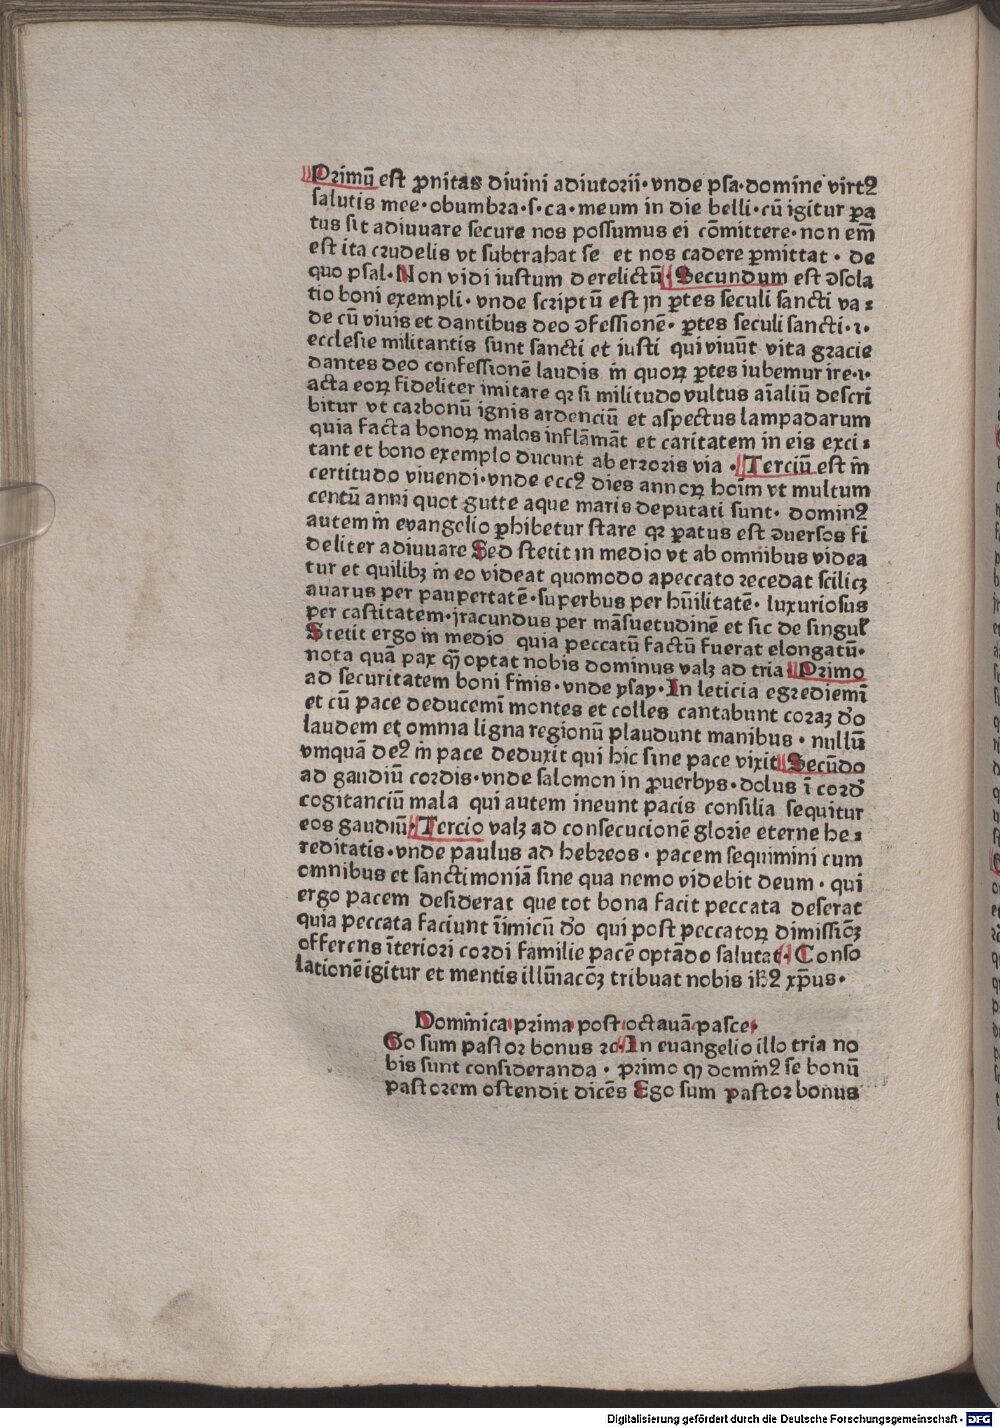 Primū est ꝓnitas diuini adiutorii· vnde psa·domine virtꝰ
salutis mee·obumbra·s·ca·meum in die belli·cū igitur ꝑa
tus sit adiuuare secure nos possumus ei cōmittere·non em̄
est ita crudelis vt subtrahat se et nos cadere ꝑmittat· de
quo psal·Non vidi iustum derelictū·Secundum est ꝯsola
tio boni exempli· vnde scriptū est in ꝑtes seculi sancti va⸗
de cū viuis et dantibus deo ꝯfessionē· ꝑtes seculi sancti·ı·
ecclesie militantis sunt sancti et iusti qui viuūt vita gracie
dantes deo confessionē laudis in quoꝝ ꝑtes iubemur ire·ı·
acta eoꝝ fideliter imitare qꝛ similitudo vultus aīaliū descri
bitur vt carbonū ignis ardenciū et aspectus lampadarum
quia facta bonoꝝ malos inflāmāt et caritatem in eis exci⸗
tant et bono exemplo ducunt ab erroris via · Terciū est in
certitudo viuendi·vnde eccꝰ dies annoꝝ hoīm vt multum
centū anni quot gutte aque maris deputati sunt· dominꝰ
autem in evangelio ꝓhibetur stare qꝛ ꝑatus est ꝯuersos fi
deliter adiuuare Sed stetit in medio vt ab omnibus videa
tur et quilibꝫ in eo videat quomodo a peccato recedat scilicꝫ
auarus per paupertatē·superbus per hūilitatē· luxuriosus
per castitatem·iracundus per māsuetudinē et sic de singuł
Stetit ergo in medio quia peccatū factū fuerat elongatū·
nota quā pax qꝫ optat nobis dominus valꝫ ad tria Primo
ad securitatem boni finis·vnde ysay·In leticia egrediemī
et cū pace deducemī montes et colles cantabunt coraꝫ dō
laudem et omnia ligna regionū plaudunt manibus · nullū
vmquā deꝰ in pace deduxit qui hic sine pace vixit Secūdo
ad gaudiū cordis·vnde salomon in ꝓuerbys·dolus ī cord̄
cogitanciū mala qui autem ineunt pacis consilia sequitur
eos gaudiū·Tercio valꝫ ad consecucionē glorie eterne he⸗
reditatis·vnde paulus ad hebreos· pacem sequimini cum
omnibus et sanctimoniā sine qua nemo videbit deum· qui
ergo pacem desiderat que tot bona facit peccata deserat
quia peccata faciunt īimicū dō qui post peccatoꝝ dimissiōꝫ
offerens īteriori cordi familie pacē optādo salutat· Conso
lationē igitur et mentis illūiacōꝫ tribuat nobis ih̄ꝰ xp̄us·
Dominica prima post octauā pasce·
Go sum pastor bonus ꝛc·In euangelio illo tria no
bis sunt consideranda · primo qꝫ dominꝰ se bonū
pastorem ostendit dicēs Ego sum pastor bonus
Digitalisierung gefördert durch die Deutsche Forschungsgemeinschaft - DFG